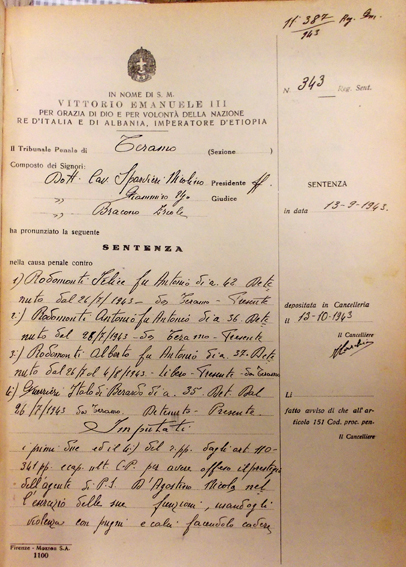 N. 387
943 Reg. Gen.
IN NOME DI S. M.
VITTORIO EMANUELE III
PER GRAZIA DI DIO E PER VOLONTÀ DELLA NAZIONE
RE D'ITALIA E DI ALBANIA, IMPERATORE D'ETIOPIA
N. 343 Reg. Sent.
Il Tribunale Penale di Teramo (Sezione )
Composto dei Signori:
Dott. Cav. Nicolino Presidente ff.
" Giudice
" Bracone
SENTENZA
in data 13-9-1943.
ha pronunziato la seguente
SENTENZA
nella causa penale contro
1) Rodomonti Felice fu Antonio di a. 42. Dete
nuto dal 26/7/1943 - da Teramo - Presente
2) Rodomonti Antonio fu Antonio di a 36. Dete
nuto dal 28/7/1943 - da Teramo - Presente
3) Rodomonti Alberto fu Antonio di a 37. Dete
nuto dal 26/7 al 4/8/1943 - libero - Presente - da Teramo
4) Guerrieri Italo di Berardo di a. 35. Det. Dal
26/7/1943 da Teramo. Detenuto - Presente.
Imputati
i primi due ed il 4) del r. pp. dagli art. 110-
341 pp. e cap. ult. C.P. per avere offeso il prestigio
dell'agente di P.S. D'Agostino Nicola nel
l'esercizio delle sue funzioni, usandogli
violenza con pugni e calci facendolo cadere
depositata in Cancelleria
il 13-10-1943
Il Cancelliere
Lì
fatto avviso di che all'ar-
ticolo 151 Cod. proc. pen.
Il Cancelliere
Firenze - Mascre S.A.
1100